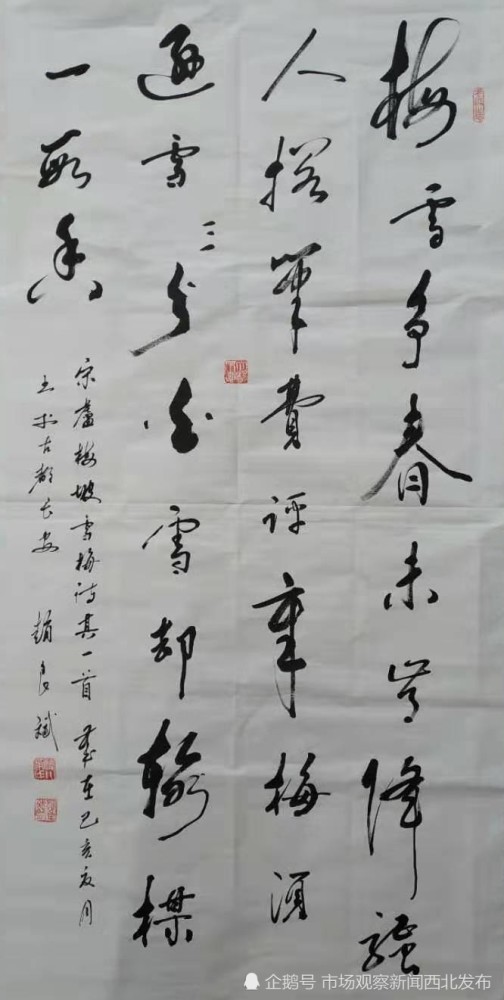 梅雪争春未肯降騷
人搁筆費評章梅須
遜雪三分白雪却輸楳
一段香
宋盧梅坡雪梅诗其一首 歲在己亥夏月
书於古都长安 趙良斌
企鹅号 市场观察新闻西北发布